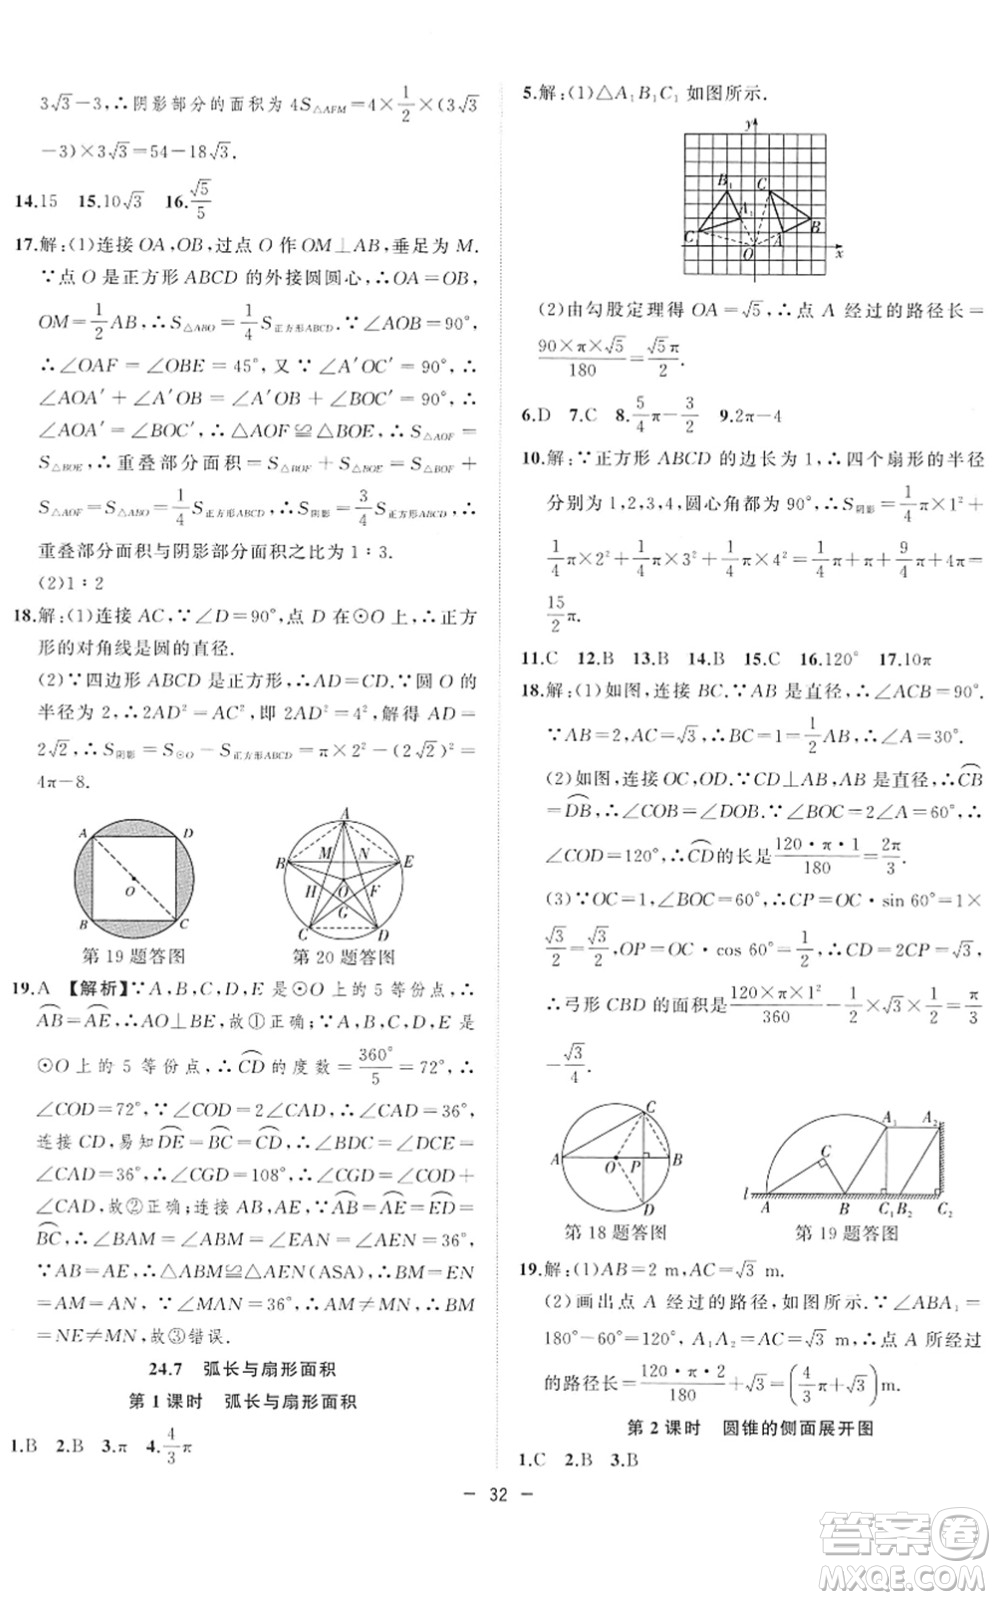 3√3－3,∴阴影部分的面积为 4S△AFM＝4×1/2×(3√3
－3)×3√3＝54－18√3.
14.15　15.10√3　16.√5/5
17.解:(1)连接 OA,OB,过点 O 作 OM⊥AB,垂足为 M.
∵点 O 是正方形 ABCD 的外接圆圆心,∴OA＝OB,
OM＝1/2AB,∴S△ABO＝1/4S正方形ABCD.∵∠AOB＝90°,
∴∠OAF＝∠OBE＝45°,又∵∠A′OC′＝90°,∴
∠AOA′＋∠A′OB＝∠A′OB＋∠BOC′＝90°,∴
∠AOA′＝∠BOC′,∴△AOF≌△BOE,∴S△AOF＝
S△BOE,∴重叠部分面积＝S△BOF＋S△BOE＝S△BOF＋
S△AOF＝S△ABO＝1/4S正方形ABCD,∴S阴影＝3/4S正方形ABCD,∴
重叠部分面积与阴影部分面积之比为 1∶3.
(2)1∶2
18.解:(1)连接 AC,∵∠D＝90°,点 D 在⊙O 上,∴正方
形的对角线是圆的直径.
(2)∵四边形 ABCD 是正方形,∴AD＝CD.∵圆 O 的
半径为 2,∴2AD²＝AC²,即 2AD²＝4²,解得 AD＝
2√2,∴S阴影＝S⊙O－S正方形ABCD＝π×2²－(2√2)²＝
4π－8.
A D O B C
A B M N E H O F G C D
第 19 题答图　第 20 题答图
19.A　【解析】∵A,B,C,D,E 是⊙O 上的 5 等份点,∴
AB⌢＝AE⌢,∴AO⊥BE,故①正确;∵A,B,C,D,E 是
⊙O 上的 5 等份点,∴CD⌢的度数＝360°/5＝72°,∴
∠COD＝72°,∵∠COD＝2∠CAD,∴∠CAD＝36°,
连接 CD,易知DE⌢＝BC⌢＝CD⌢,∴∠BDC＝∠DCE＝
∠CAD＝36°,∴∠CGD＝108°,∴∠CGD≠∠COD＋
∠CAD,故②正确;连接 AB,AE,∵AB⌢＝AE⌢＝ED⌢＝
BC⌢,∴∠BAM＝∠ABM＝∠EAN＝∠AEN＝36°,
∵AB＝AE,∴△ABM≌△AEN(ASA),∴BM＝EN
＝AM＝AN,∵∠MAN＝36°,∴AM≠MN,∴BM＝
NE≠MN,故③错误.
24.7　弧长与扇形面积
第 1 课时　弧长与扇形面积
1.B　2.B　3.π　4.4/3π
5.解:(1)△A₁B₁C₁ 如图所示.
y B₁ C A₁ C₁ A B O x
(2)由勾股定理得 OA＝√5,∴点 A 经过的路径长＝
90×π×√5/180＝√5π/2.
6.D　7.C　8.5/4π－3/2　9.2π－4
10.解:∵正方形 ABCD 的边长为 1,∴四个扇形的半径
分别为 1,2,3,4,圆心角都为 90°,∴S阴影＝1/4π×1²＋
1/4π×2²＋1/4π×3²＋1/4π×4²＝1/4π＋π＋9/4π＋4π＝
15/2π.
11.C　12.B　13.B　14.B　15.C　16.120°　17.10π
18.解:(1)如图,连接 BC.∵AB 是直径,∴∠ACB＝90°.
∵AB＝2,AC＝√3,∴BC＝1＝1/2AB,∴∠A＝30°.
(2)如图,连接 OC,OD.∵CD⊥AB,AB 是直径,∴CB⌢
＝DB⌢,∴∠COB＝∠DOB.∵∠BOC＝2∠A＝60°,∴
∠COD＝120°,∴CD⌢的长是120·π·1/180＝2π/3.
(3)∵OC＝1,∠BOC＝60°,∴CP＝OC·sin 60°＝1×
√3/2＝√3/2,OP＝OC·cos 60°＝1/2,∴CD＝2CP＝√3,
∴弓形 CBD 的面积是120×π×1²/360－1/2×√3×1/2＝π/3
－√3/4.
C A O P B D
A₁ A₂ C l A B C₁ B₂ C₂
第 18 题答图　第 19 题答图
19.解:(1)AB＝2 m,AC＝√3 m.
(2)画出点 A 经过的路径,如图所示.∵∠ABA₁＝
180°－60°＝120°,A₁A₂＝AC＝√3 m,∴点 A 所经过
的路径长＝120·π·2/180＋√3＝(4/3π＋√3)(m).
第 2 课时　圆锥的侧面展开图
1.C　2.B　3.B
－ 32 －
答案圈
MXQE.COM